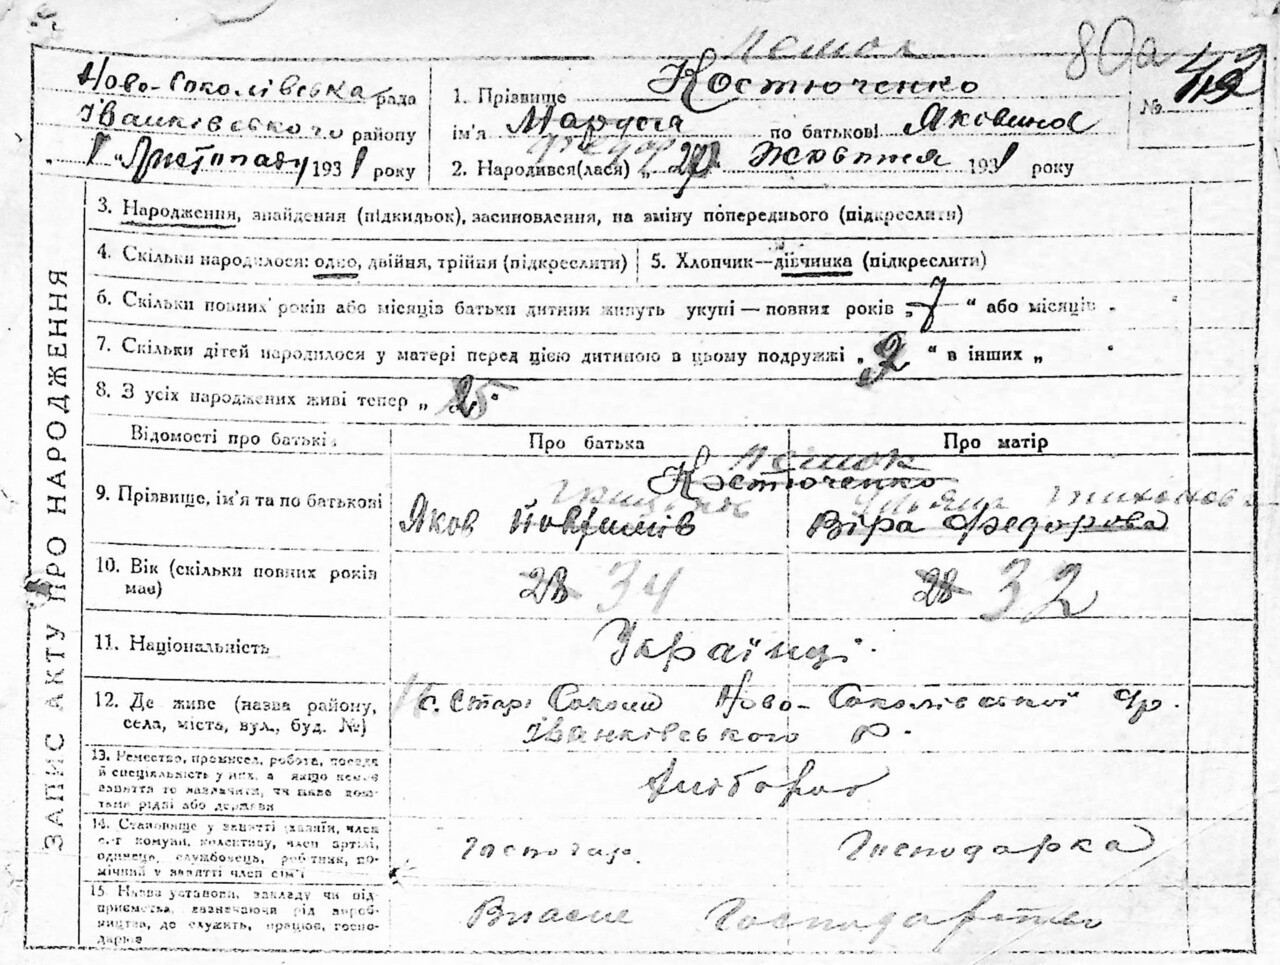 Лешок
80а 42
Ново-Соколівська рада
Іванківського району
" 1 " Листопаду 1931 року
1. Прізвище Костюченко
ім'я Маруся по батькові Яковина
Федор
2. Народився(лася) " Жовтня 1931 року
№ 42
ЗАПИС АКТУ ПРО НАРОДЖЕННЯ
3. Народження, знайдення (підкидьок), засиновлення, на зміну попереднього (підкреслити)
4. Скільки народилося: одно, двійня, трійня (підкреслити)
5. Хлопчик—дівчинка (підкреслити)
6. Скільки повних років або місяців батьки дитини живуть укупі — повних років „ 7 “ або місяців
7. Скільки дітей народилося у матері перед цією дитиною в цьому подружжі „ 2 “ в інших „
8. З усіх народжених живі тепер „
Відомості про батьків
Про батька
Про матір
9. Прізвище, ім'я та по батькові
Лешок
Костюченко
Яков
Віра Федорова
Тихонов
10. Вік (скільки повних років має)
28 34
28 32
11. Національність
Українці.
12. Де живе (назва району, села, міста, вул., буд. №)
с. Старі Соколи Ново-Соколівської с/р.
Іванківського р.
13. Ремество, промисел, робота, посада
й спеціяльність у них, а якщо немає
заняття то зазначити, чи має кош-
тами рідні або держави
Хлібороб
14. Становище у занятті (хазяїн, член
с.-г. комуни, колективу, член артілі,
одинець, службовець, робітник, по-
мічний у занятті член сім'ї
Господар.
Господарка
15. Назва установи, закладу чи під-
приємства, зазначаючи рід вироб-
ництва, де служить, працює, госпо-
дарює
Власне Господарство